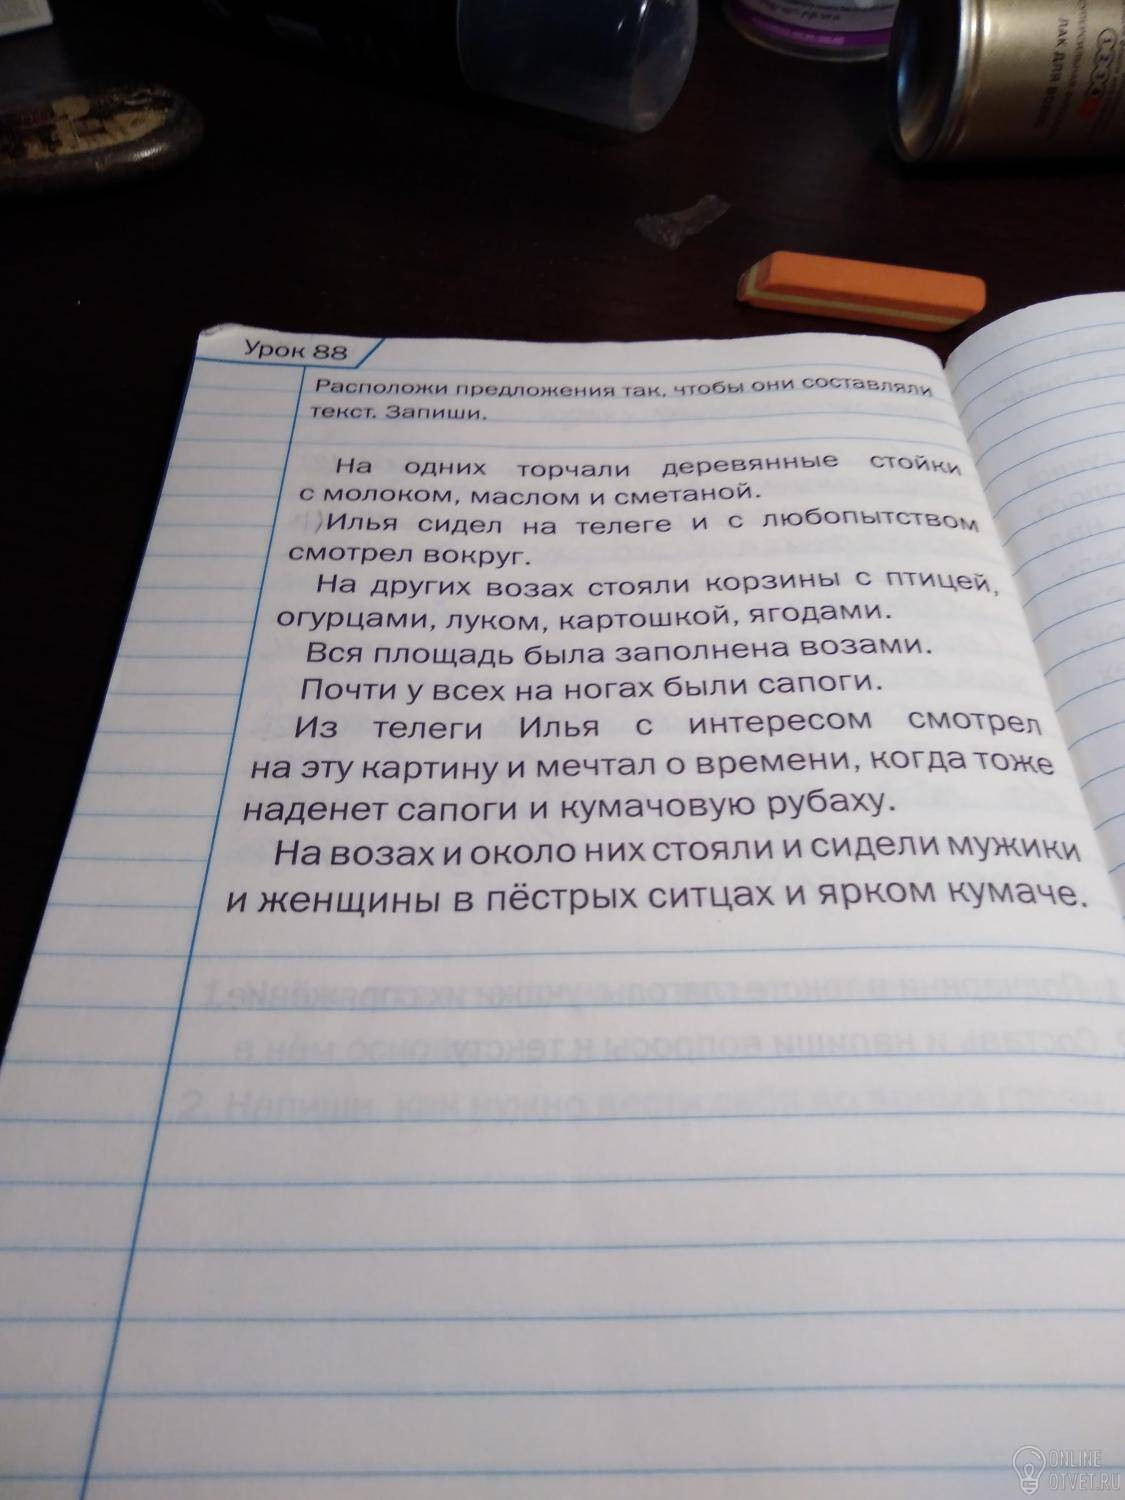 ЛАК ДЛЯ ВОЛОС
1 2 3 4
Урок 88
Расположи предложения так, чтобы они составляли
текст. Запиши.
На одних торчали деревянные стойки
с молоком, маслом и сметаной.
1) Илья сидел на телеге и с любопытством
смотрел вокруг.
На других возах стояли корзины с птицей,
огурцами, луком, картошкой, ягодами.
Вся площадь была заполнена возами.
Почти у всех на ногах были сапоги.
Из телеги Илья с интересом смотрел
на эту картину и мечтал о времени, когда тоже
наденет сапоги и кумачовую рубаху.
На возах и около них стояли и сидели мужики
и женщины в пёстрых ситцах и ярком кумаче.
ONLINE
OTVET.RU